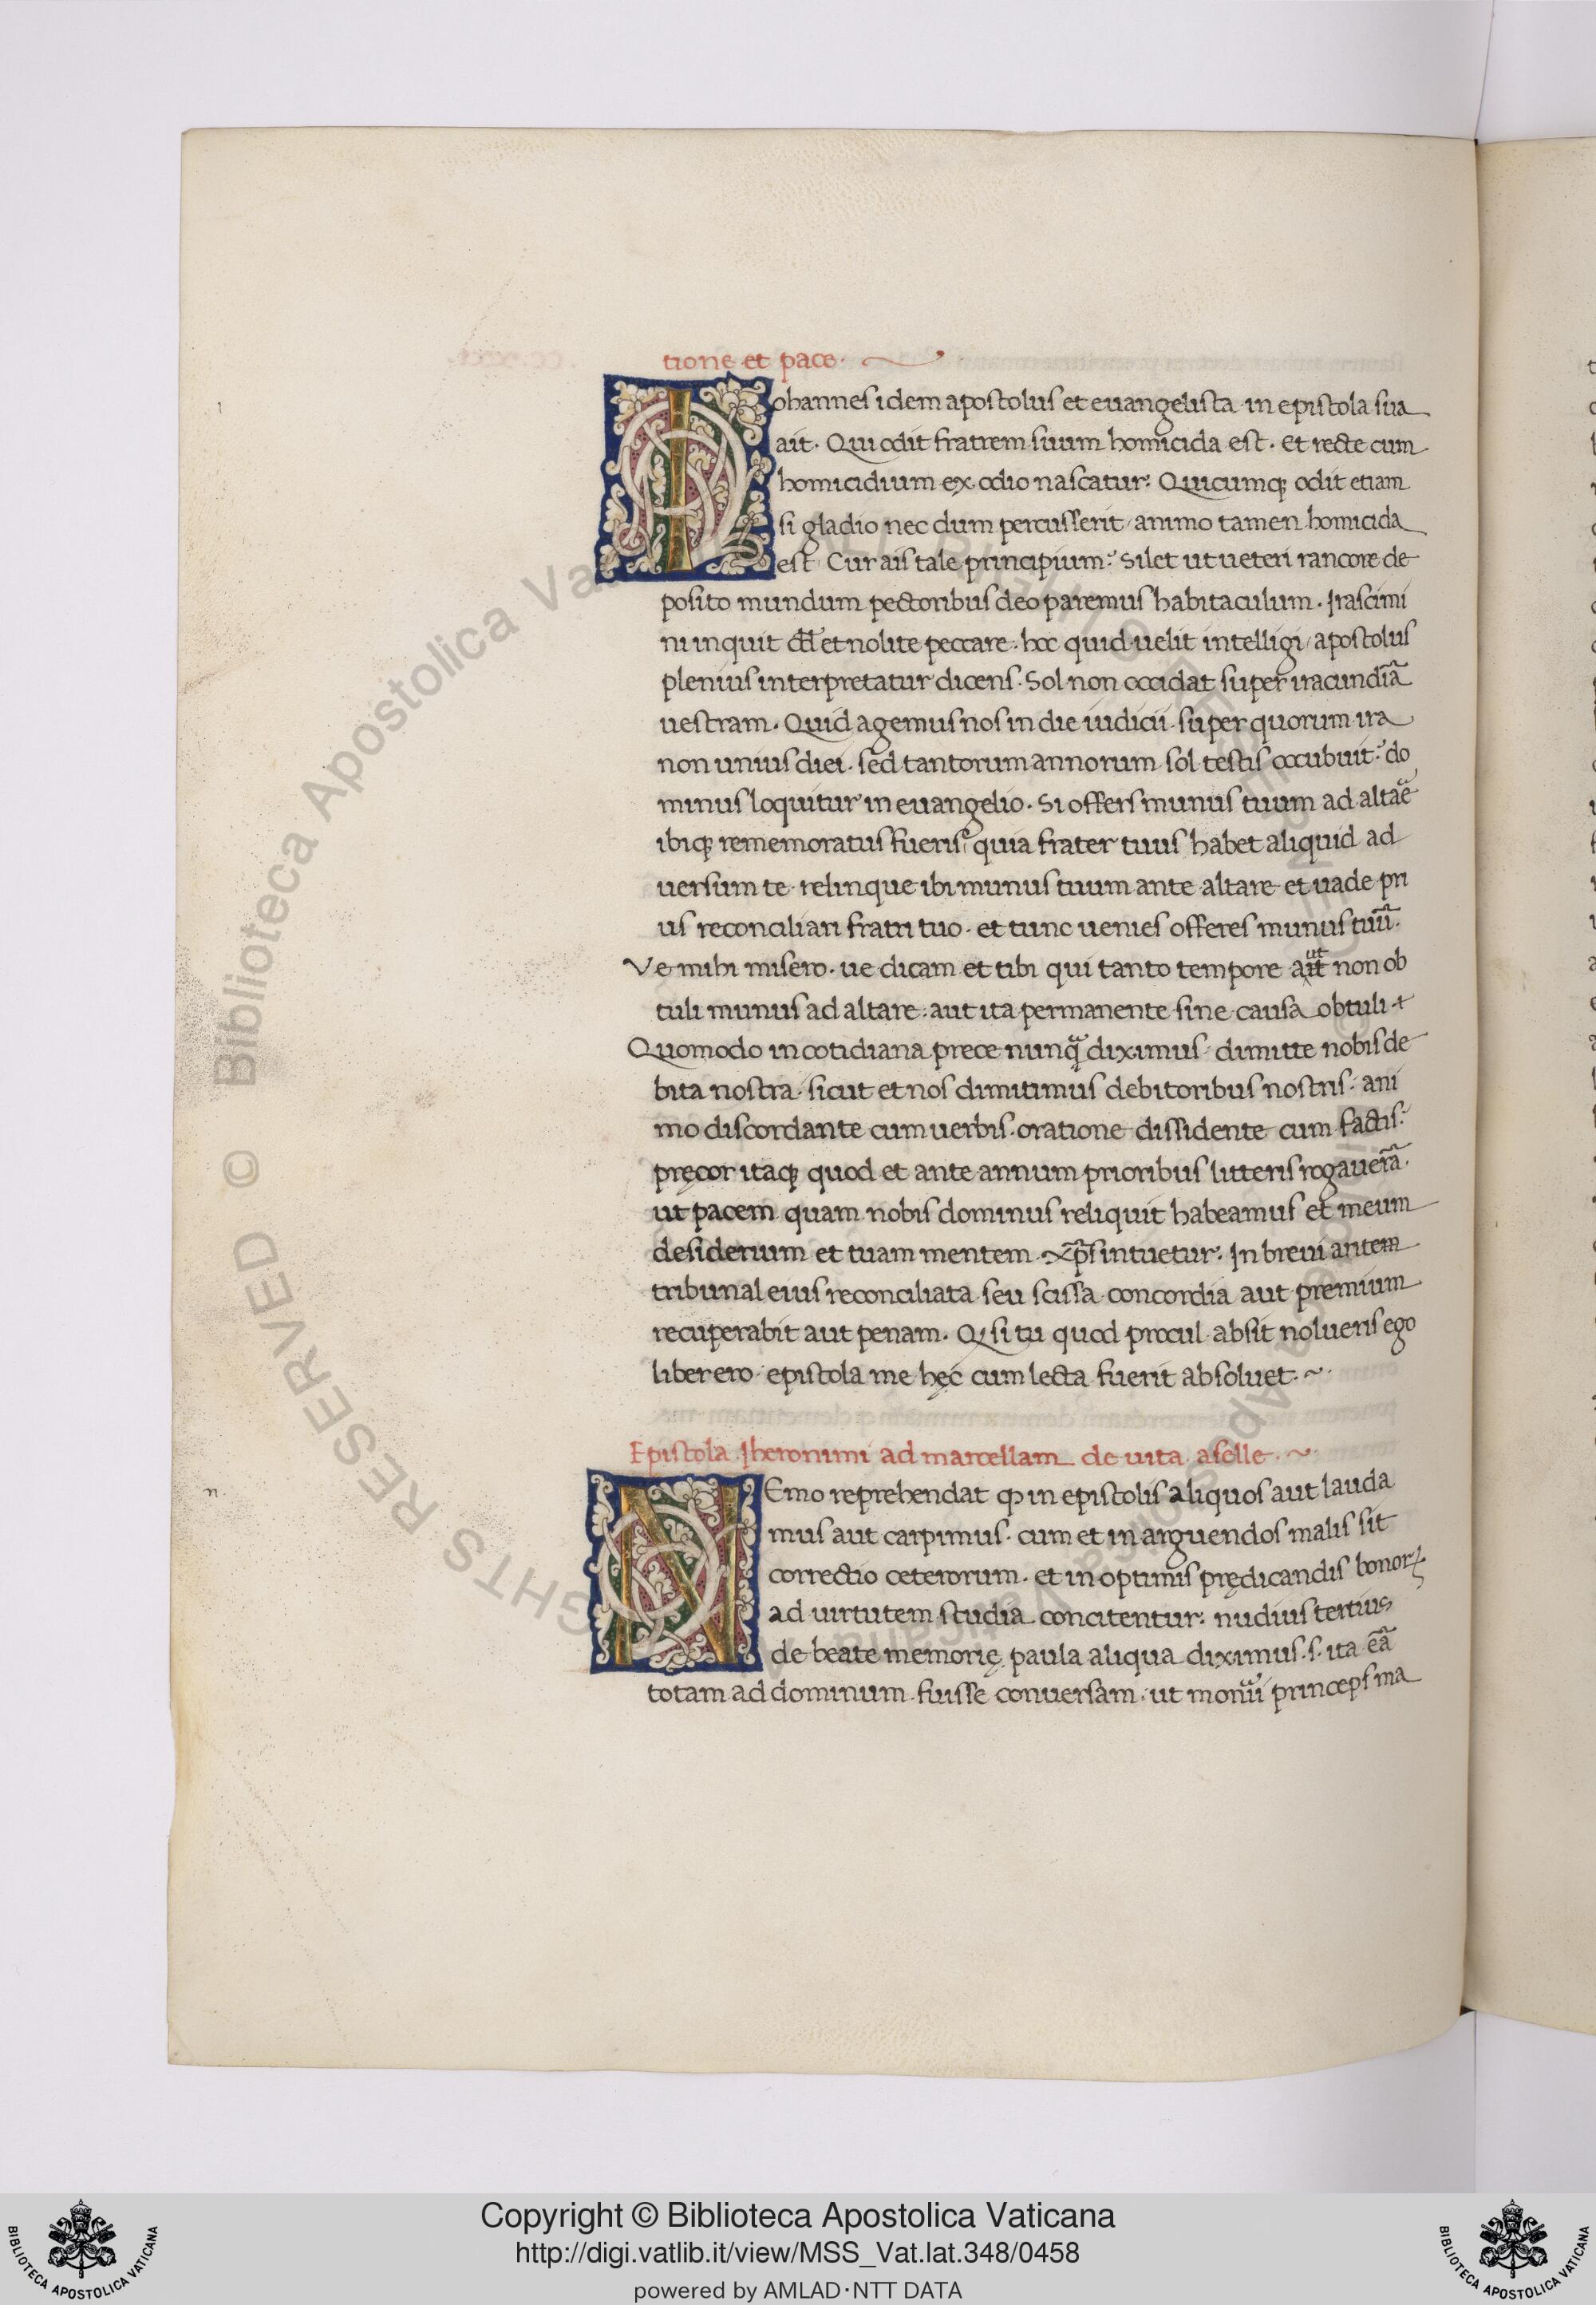 tione et pace.
Iohannes idem apostolus et euangelista in epistola sua
ait. Qui odit fratrem suum homicida est. Et recte cum
homicidium ex odio nascatur: Quicumqꝫ odit etiam
si gladio nec dum percusserit / animo tamen homicida
est Cur ais tale principium? Silet ut ueteri rancore de
posito mundum pectoribus deo paremus habitaculum. Irascimi
ni inquit dd̄ et nolite peccare. hoc quid uelit intelligi / apostolus
plenius interpretatur dicens. Sol non occidat super iracundiā
uestram. Quid agemus nos in die iudicii. super quorum ira
non unius diei. sed tantorum annorum sol testis occubuit? do
minus loquitur in euangelio. Si offers munus tuum ad altare
ibiqꝫ rememoratus fueris? quia frater tuus habet aliquid ad
uersum te. relinque ibi munus tuum ante altare et uade pri
us reconciliari fratri tuo. et tunc uenies offeres munus tuū.
Ve mihi misero. ue dicam et tibi qui tanto tempore aut non ob
tuli munus ad altare: aut ita permanente sine causa obtuli
Quomodo in cotidiana prece nunqᷓ diximus dimitte nobis de
bita nostra. sicut et nos dimittimus debitoribus nostris. ani
mo discordante cum uerbis. oratione dissidente cum factis?
pręcor itaqꝫ quod et ante annum prioribus litteris rogauerā.
ut pacem quam nobis dominus reliquit habeamus et meum
desiderium et tuam mentem xp̄s intuetur: In breui antem
tribunal eius reconciliata seu scissa concordia aut premium
recuperabit aut penam. Qꝫ si tu quod procul absit nolueris ego
liber ero. epistola me hęc cum lecta fuerit absoluet.
Epistola Iheronimi ad marcellam de uita aselle.
n
NEmo reprehendat ꝙ in epistolis aliquos aut lauda
mus aut carpimus. cum et in arguendos malis sit
correctio ceterorum. et in optimis prędicandis bonorꝝ
ad uirtutem studia concitentur: nudius tertius
de beate memorię paula aliqua diximus. s. ita eā
totam ad dominum fuisse conuersam. ut princeps ma
Copyright © Biblioteca Apostolica Vaticana
http://digi.vatlib.it/view/MSS_Vat.lat.348/0458
powered by AMLAD·NTT DATA
BIBLIOTECA APOSTOLICA VATICANA
BIBLIOTECA APOSTOLICA VATICANA
© Biblioteca Apostolica Vaticana
RIGHTS RESERVED